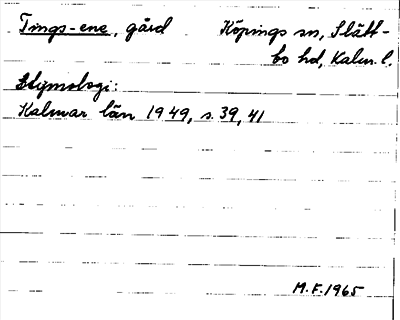 Tings-ene, gård Köpings sn, Slätt-
bo hd, Kalm. l.
Etymologi:
Kalmar län 1949, s. 39, 41
M.F. 1965